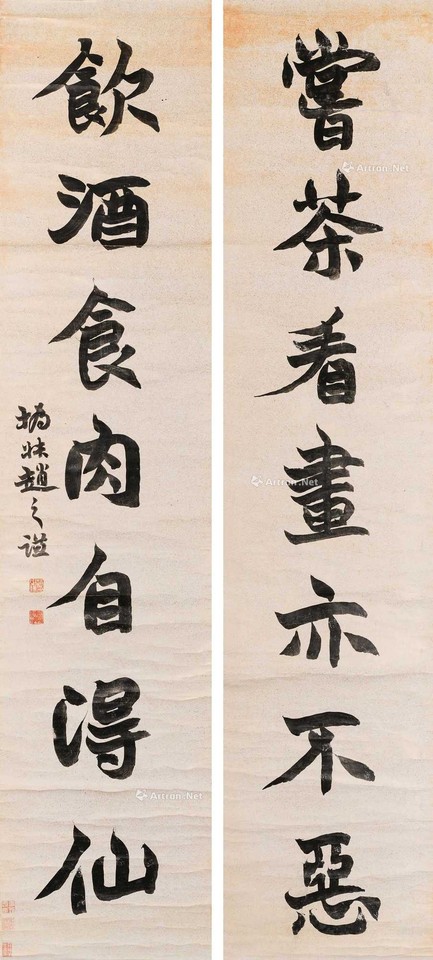 嘗茶看畫亦不惡
飲酒食肉自得仙
撝叔趙之謙
Artron.Net
Artron.Net
Artron.Net